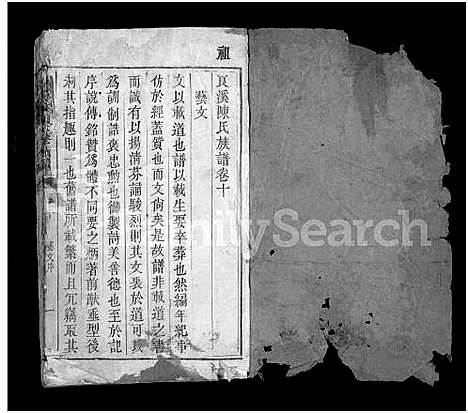 祖
良溪陳氏族譜卷十
藝文
文以載道也譜以載生娶卒葬也然編年紀事
仿於經蓋質也而文尚矣是故譜非載道之書
而識有以揚清芬誦駿烈則其文衷於道可以
為訓制誥褒忠勲也御製詩美善德也至於記
序說傳銘贊為體不同要之炳著前猷垂型後
其指趣則一也舊譜所載繁而且冗竊取其
藝文序
FamilySearch